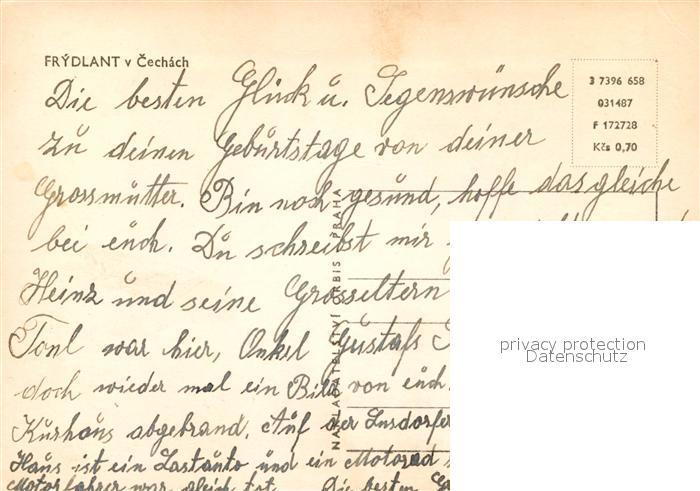 FRÝDLANT v Čechách
3 7396 658
031487
F 172728
Kčs 0,70
Die besten Glück u. Segenswünsche
zu deinen Geburtstage von deiner
Grossmutter. Bin noch gesund, hoffe das gleiche
bei euch. Du schreibst mir
Heinz und seine Grosseltern
Tonl war hier, Onkel Gustafs
doch wieder mal ein Bild von euch.
Kurhaus abgebrand. Auf der Lusdorfer
Haus ist ein Lastauto und ein Motorad
Motorfahrer war gleich tot. Die besten
NAKLADATELSTVÍ ORBIS PRAHA
privacy protection
Datenschutz